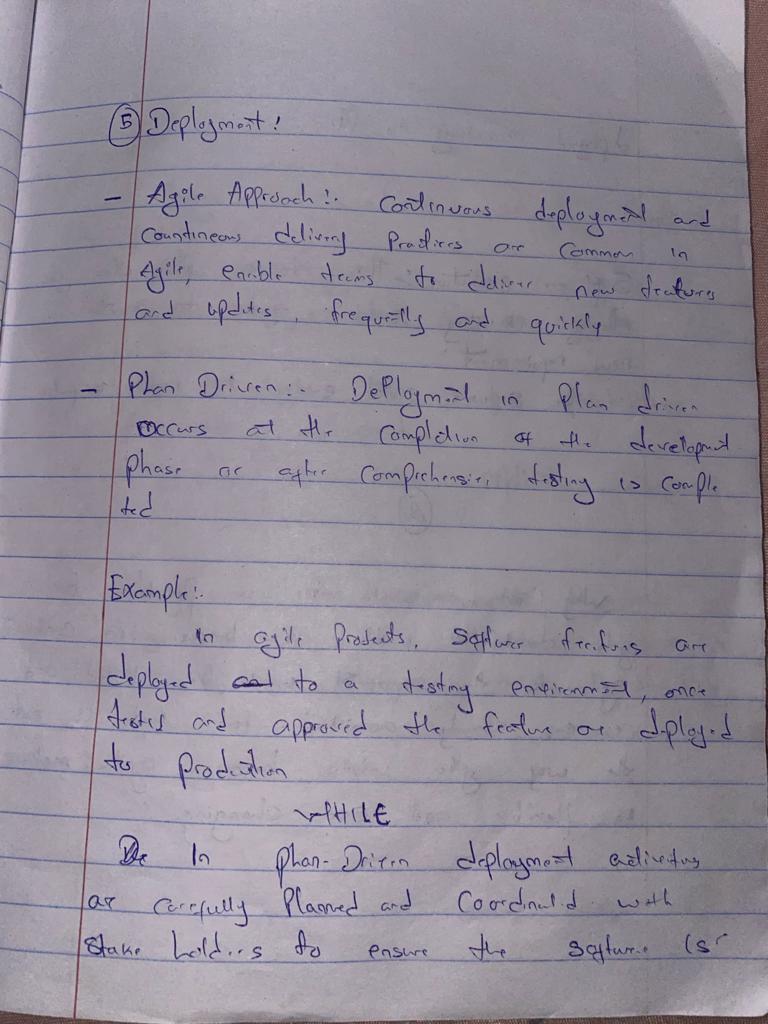 5 Deployment!
- Agile Approach:. Continuous deployment and
Countineous delivery Practices are Common in
Agile, enable teams to deliver new features
and updates, frequently and quickly
- Plan Driven:- Deployment in Plan driven
occurs at the completion of the development
phase or after comprehensive testing is comple
ted
Example:.
In agile Projects, Software features are
deployed to a testing environment, once
tested and approved the feature are deployed
to production
WHILE
In Plan-Driven deployment activities
are carefully Planned and Coordinated with
Stake holders to ensure the software is